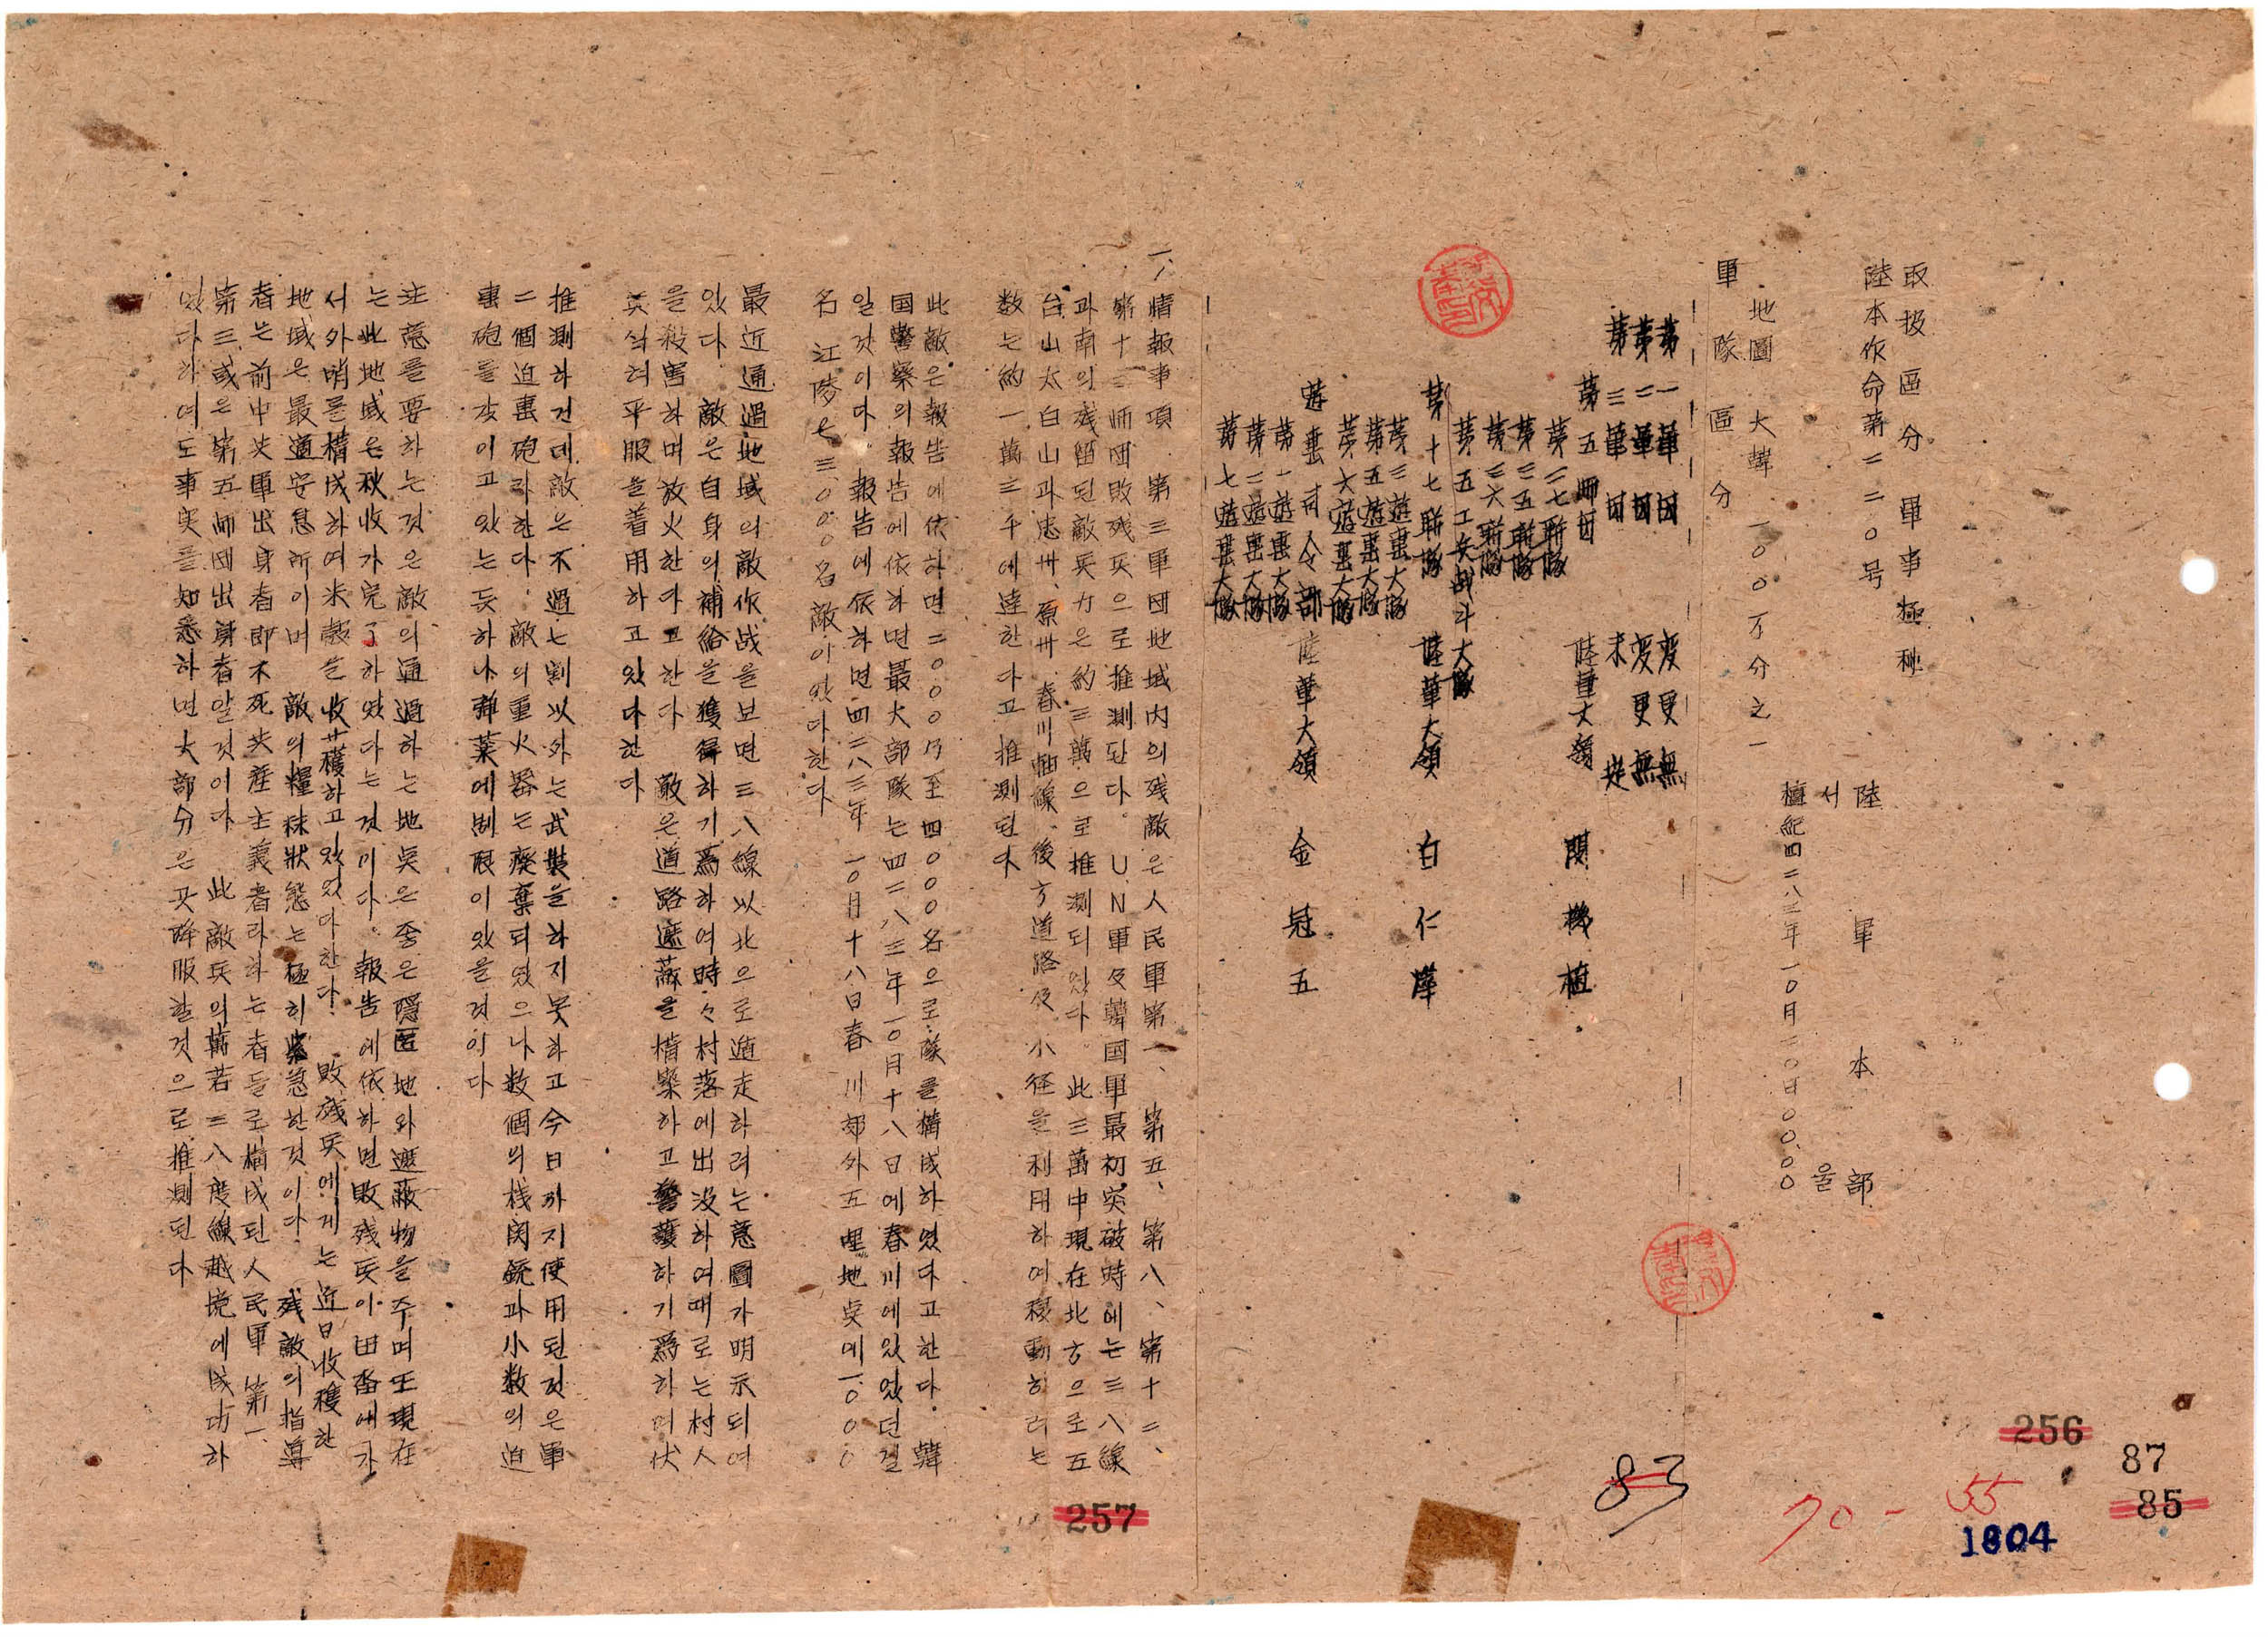 取扱區分 軍事極秘
陸本作命第二二〇号
陸軍本部
서울
檀紀四二八三年一〇月二〇日〇〇.〇〇
地圖 大韓 一〇〇万分之一
軍隊區分
第一軍団 変更無
第二軍団 変更無
第三軍団 未定
第五師団 陸軍大領 閔機植
第二七聯隊
第三五聯隊
第三六聯隊
第五工兵战斗大隊
第十七聯隊 陸軍大領 白仁燁
第三遊擊大隊
第五遊擊大隊
第六遊擊大隊
遊擊司令部 陸軍大領 金冠五
第一遊擊大隊
第二遊擊大隊
第七遊擊大隊
一、情報事項 第三軍団地域内의残敵은人民軍第一、第五、第八、第十二、
第十三師団敗残兵으로推測된다. UN軍及韓国軍最初突破時에는三八線
과南의残留된敵兵力은約三萬으로推測되였다. 此三萬中現在北方으로五
台山太白山과忠州、原州、春川軸線、後方道路及小径을利用하여移動하려는
数는約一萬三千에達한다고推測된다
此敵은報告에依하면二〇〇〇乃至四〇〇〇名으로隊를構成하였다고한다. 韓
国警察의報告에依하면最大部隊는四二八三年一〇月十八日에春川에있었던걸
일것이다. 報告에依하면四二八三年一〇月十八日春川郊外五哩地点에一〇〇〇
名江陵七三〇〇〇名敵이있다한다
最近通過地域의敵作战을보면三八線以北으로遁走하려는意圖가明示되여
있다. 敵은自身의補給을獲得하기爲하여時々村落에出没하여때로는村人
을殺害하며放火한다고한다 敵은道路遮蔽을構築하고警護하기爲하여伏
兵식혀平服을着用하고있다한다
推測하건데敵은不過七割以外는武裝을하지못하고今日까지使用된것은軍
二個迫擊砲라한다. 敵의重火器는廃棄되였으나数個의桟関銃과小数의迫
擊砲를갖이고있는듯하나弾薬에制限이있을것이다
注意를要하는것은敵의通過하는地点은좋은隱匿地와遮蔽物을주며또現在
는此地域은秋收가完了하였다는것이다. 報告에依하면敗残兵이田畓에가
서外哨를構成하여米穀을收穫하고있었다한다. 敗残兵에게는近日收穫한
地域은最適安息所이며 敵의糧秣狀態는極히緊急한것이다. 残敵의指導
者는前中共軍出身者即不死共産主義者라하는者들로構成된人民軍第一、
第三或은第五師団出身者일것이다 此敵兵의萬若三八度線越境에成功하
였다하여도事実을知悉하면大部分은곳降服할것으로推測된다
256
87
85
83
70-55
1804
257